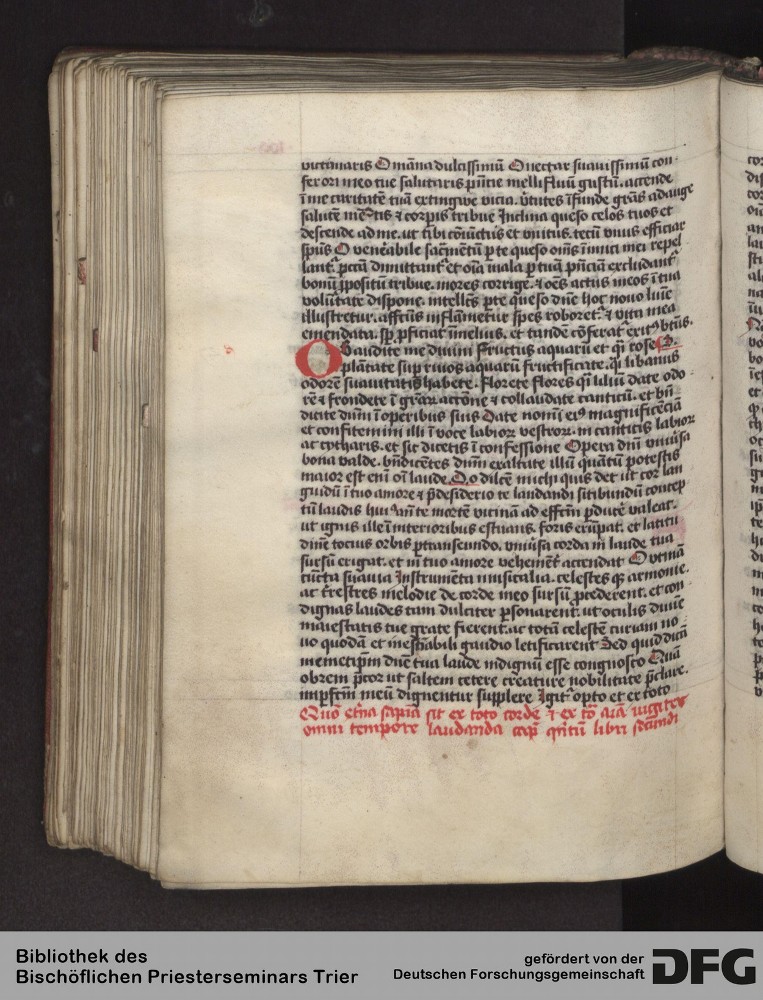 victimaris O māna dulcissimū O nectar suauissimū con
fer ori meo tue salutaris pn̄cie mellifluū gustū. accende
ī me caritatē tuā extingwe vicia. v̓tutes īfunde grās adauge
salutē mētis ⁊ corpis tribue Inclina queso celos tuos et
descende ad me. ut tibi cōiūctus et vnitus. tecū vnus efficiar
sp̄us O venēabile sacm̄entū p te queso oīns īimici mei repel
lant̄. pccā dimittant̄ et oīa mala p tuā pn̄ciam excludant̄
bonū p̄positū tribue. mores corrige. ⁊ oēs actus meos ī tua
volūtate dispone. intellcūs p te queso dn̄e hoc nouo luīe
illustretur. affcūs inflāmetur spes roboret̄. ⁊ vita mea
emendata. sp̄ pficiat̄ ī melius. et tandē cōferat̄ exitꝰ btūs.
Obaudite me diuini fructus aquarū et q̄i rosa
plātate sup riuos aquarū fructificate. q̄i libanus
odorē suauitatis habete. florete flores q̄i liliū date odo
rē ⁊ frondete ī grām actōne ⁊ collaudate canticū. et bn̄
dicite dnīn ī operibus suis Date nomī eiꝰ magnificēciā
et confitemini illi ī voce labioꝝ vestroꝝ. in canticis labioꝝ
ac cytharis. et sic dicetis ī confessione Opera dn̄i vniūsa
bona valde. bn̄dicētes dnīn exaltate illū quātū potestis
maior est enī oī laude. O dilcē michi quis det ut cor lan
guidū ī tuo amore ⁊ p̄ desiderio te laudandi sitibundū concep
tū laudis huiꝰ an̄ te mortē vicinā ad effcm̄ pducē valeat.
ut ignis ille ī interioribus estuans. foris erūpat. et latitu
dinē tocius orbis ptranseundo. vniūsa corda in laude tua
sursū erigat. et in tuo amore vehement̄ accendat O vtinā
cūcta suauia Instrumēta musicalia. celestes qꝫ armonie.
ac t̄restres melodie de corde meo sursū pcederent. et con
dignas laudes tam dulciter psonarent. ut oculis diuīe
maiestatis tue grate fierent. ac totā celestē curiam no
uo quodā et inesthābili gaudio letificarent Sed quid dicā
memetipm̄ dn̄e tua laude indignū esse congnosco Quā
obrem pcor ut saltem cetere creature nobilitate pclare.
impfcm̄ meū dignentur supplere Igit̄ opto et ex toto
Quō et̄na sapīa sit ex toto corde ⁊ ex tō aīa iugiter
omni tempore laudanda cap̄ q̄ntū libri scdi
Bibliothek des
Bischöflichen Priesterseminars Trier
gefördert von der
Deutschen Forschungsgemeinschaft
DFG